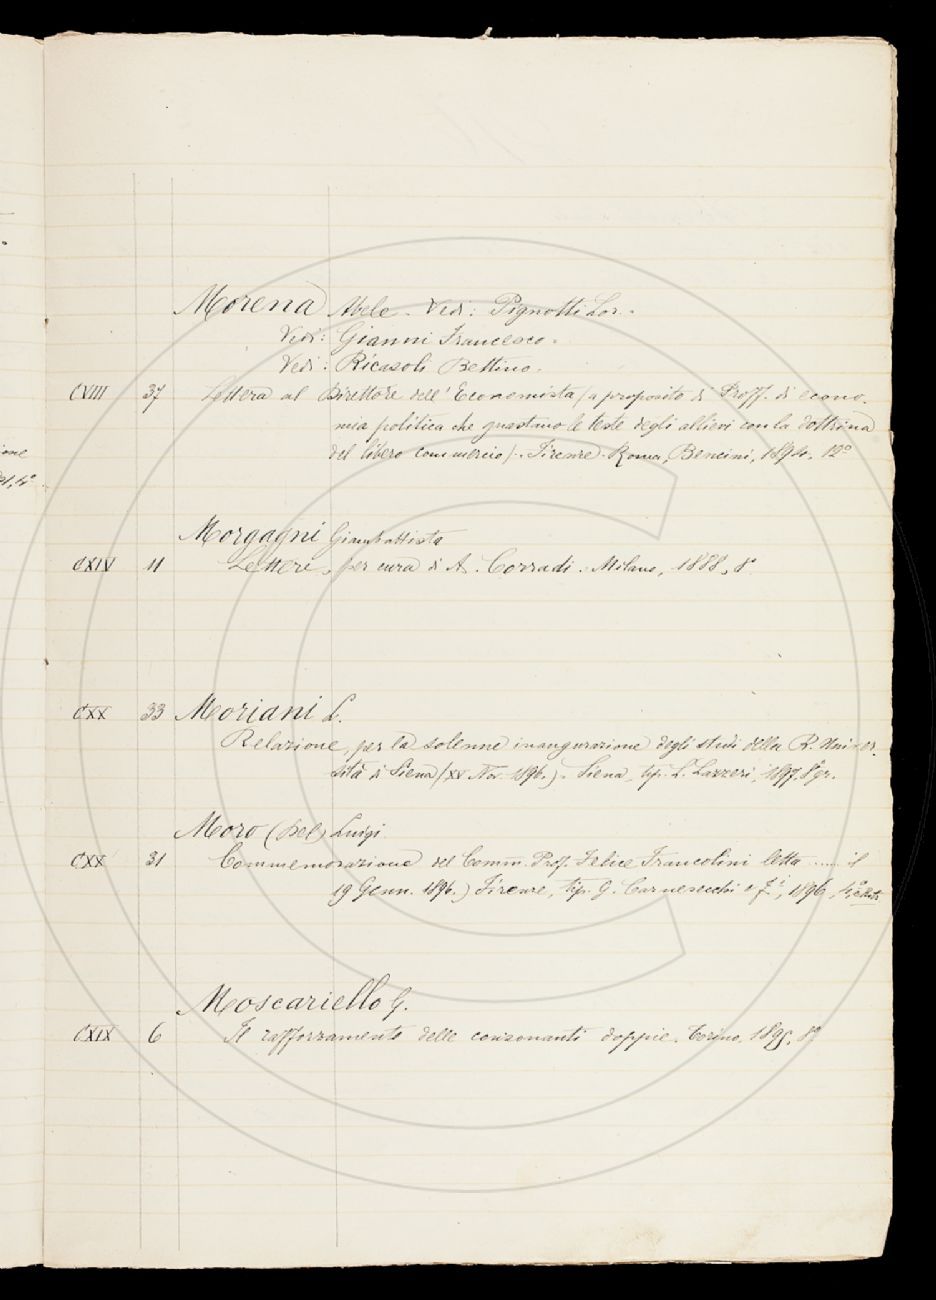 Morena Abele. Vedi: Pignotti Lor.
Vedi: Gianni Francesco.
Vedi: Ricasoli Bettino.
CVIII 37 Lettera al Direttore dell'Economista (a proposito di Proff. di econo-
mia politica che guastano le teste degli allievi con la dottrina
del libero commercio). Firenze-Roma, Bencini, 1894. 12°
Morgagni Giambattista
CXIV 11 Lettere, per cura di A. Corradi. Milano, 1888, 8°
CXX 33 Moriani L.
Relazione, per la solenne inaugurazione degli studi della R. Univer-
sità di Siena (XV Nov. 1896.). Siena, tip. L. Lazzeri, 1897. 8° gr.
Moro (Del) Luigi
CXX 31 Commemorazione del Comm. Prof. Felice Francolini letta ..... il
19 Genn. 1896.) Firenze, tip. G. Carnesecchi e F.i, 1896, 4°
Moscariello G.
CXIX 6 Il rafforzamento delle consonanti doppie. Torino, 1895, 8°
one
4°